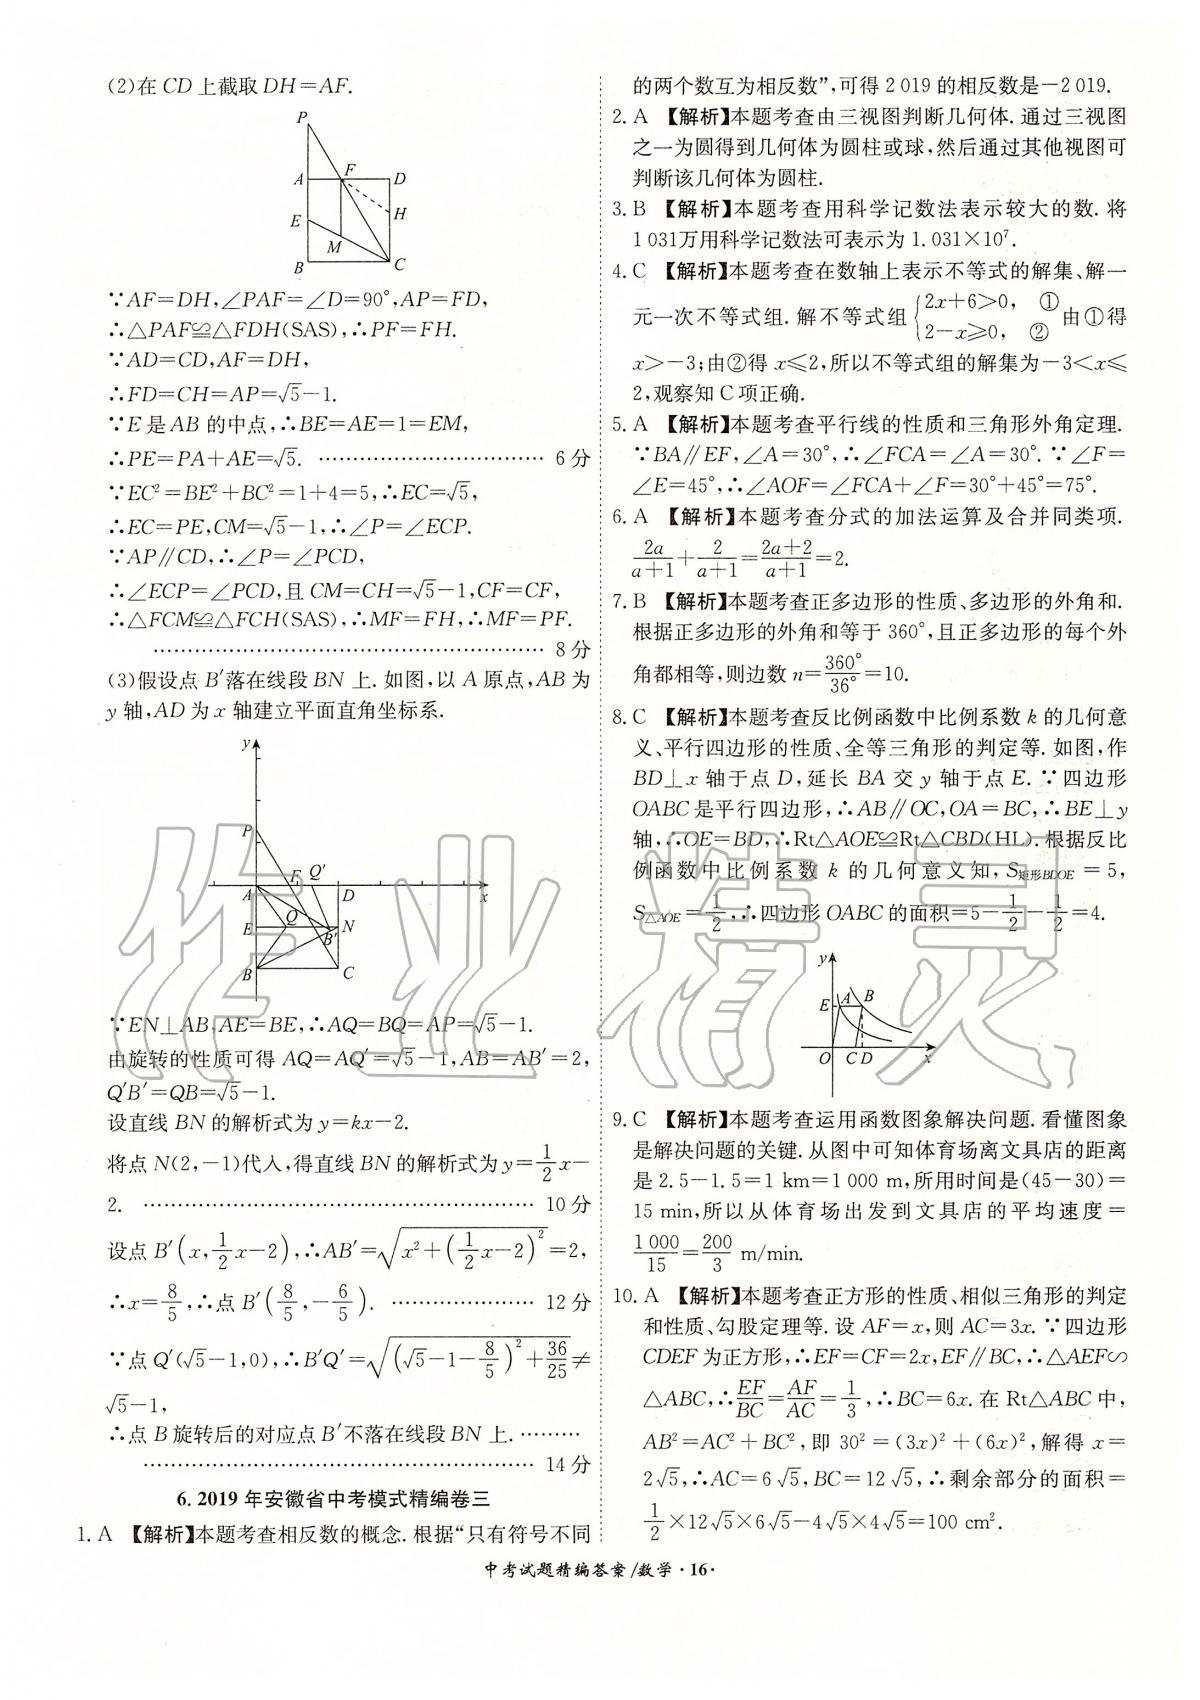 (2)在 CD 上截取 DH=AF.
P
A
F
D
H
E
M
B
C
∵AF=DH,∠PAF=∠D=90°,AP=FD,
∴△PAF≌△FDH(SAS),∴PF=FH.
∵AD=CD,AF=DH,
∴FD=CH=AP=√5-1.
∵E 是 AB 的中点,∴BE=AE=1=EM,
∴PE=PA+AE=√5. …………………………… 6 分
∵EC²=BE²+BC²=1+4=5,∴EC=√5,
∴EC=PE,CM=√5-1,∴∠P=∠ECP.
∵AP∥CD,∴∠P=∠PCD,
∴∠ECP=∠PCD,且 CM=CH=√5-1,CF=CF,
∴△FCM≌△FCH(SAS),∴MF=FH,∴MF=PF.
…………………………………………………… 8 分
(3)假设点 B′落在线段 BN 上. 如图,以 A 原点,AB 为
y 轴,AD 为 x 轴建立平面直角坐标系.
y
P
F Q′
A
D
x
Q
E
B′
N
B
C
∵EN⊥AB,AE=BE,∴AQ=BQ=AP=√5-1.
由旋转的性质可得 AQ=AQ′=√5-1,AB=AB′=2,
Q′B′=QB=√5-1.
设直线 BN 的解析式为 y=kx-2.
将点 N(2,-1)代入,得直线 BN 的解析式为 y=1/2x-
2. …………………………………………………… 10 分
设点 B′(x,1/2x-2),∴AB′=√(x²+(1/2x-2)²)=2,
∴x=8/5,∴点 B′(8/5,-6/5). ………………… 12 分
∵点 Q′(√5-1,0),∴B′Q′=√((√5-1-8/5)²+36/25)≠
√5-1,
∴点 B 旋转后的对应点 B′不落在线段 BN 上. ………
…………………………………………………… 14 分
6. 2019 年安徽省中考模式精编卷三
1. A 【解析】本题考查相反数的概念. 根据“只有符号不同
的两个数互为相反数”,可得 2 019 的相反数是-2 019.
2. A 【解析】本题考查由三视图判断几何体. 通过三视图
之一为圆得到几何体为圆柱或球,然后通过其他视图可
判断该几何体为圆柱.
3. B 【解析】本题考查用科学记数法表示较大的数. 将
1 031万用科学记数法可表示为 1.031×10⁷.
4. C 【解析】本题考查在数轴上表示不等式的解集、解一
元一次不等式组. 解不等式组{2x+6>0, ① 2-x≥0, ② 由①得
x>-3;由②得 x≤2,所以不等式组的解集为-3<x≤
2,观察知 C 项正确.
5. A 【解析】本题考查平行线的性质和三角形外角定理.
∵BA∥EF,∠A=30°,∴∠FCA=∠A=30°. ∵∠F=
∠E=45°,∴∠AOF=∠FCA+∠F=30°+45°=75°.
6. A 【解析】本题考查分式的加法运算及合并同类项.
2a/(a+1)+2/(a+1)=(2a+2)/(a+1)=2.
7. B 【解析】本题考查正多边形的性质、多边形的外角和.
根据正多边形的外角和等于 360°,且正多边形的每个外
角都相等,则边数 n=360°/36°=10.
8. C 【解析】本题考查反比例函数中比例系数 k 的几何意
义、平行四边形的性质、全等三角形的判定等. 如图,作
BD⊥x 轴于点 D,延长 BA 交 y 轴于点 E. ∵四边形
OABC 是平行四边形,∴AB∥OC,OA=BC,∴BE⊥y
轴,∴OE=BD,∴Rt△AOE≌Rt△CBD(HL). 根据反比
例函数中比例系数 k 的几何意义知, S矩形BDOE = 5,
S△AOE=1/2,∴四边形 OABC 的面积=5-1/2-1/2=4.
y
E
A
B
O
C
D
x
9. C 【解析】本题考查运用函数图象解决问题. 看懂图象
是解决问题的关键. 从图中可知体育场离文具店的距离
是 2.5-1.5=1 km=1 000 m,所用时间是(45-30)=
15 min,所以从体育场出发到文具店的平均速度=
1 000/15=200/3 m/min.
10. A 【解析】本题考查正方形的性质、相似三角形的判定
和性质、勾股定理等. 设 AF=x,则 AC=3x. ∵四边形
CDEF 为正方形,∴EF=CF=2x,EF∥BC,∴△AEF∽
△ABC,∴EF/BC=AF/AC=1/3,∴BC=6x. 在 Rt△ABC 中,
AB²=AC²+BC²,即 30²=(3x)²+(6x)²,解得 x=
2√5,∴AC=6√5,BC=12√5,∴剩余部分的面积=
1/2×12√5×6√5-4√5×4√5=100 cm².
中考试题精编答案/数学·16·
作业精灵